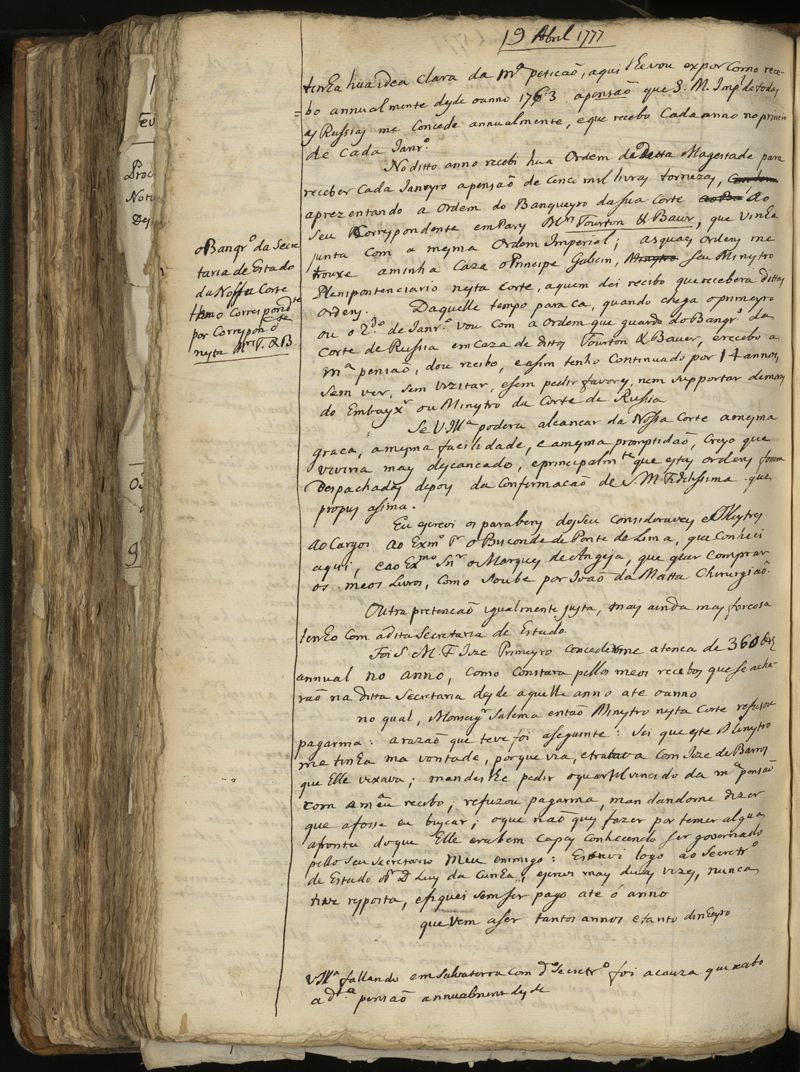 19 Abril 1777
tinha hua idea clara da mª peticaõ, aqui lhe vou expor como rece-
bo annualmente desde o anno 1763 a pensaõ que S. M. Impl de todas
as Russias me concede annualmente, e que recebo cada anno no principio
de cada Janrº.
No ditto anno recebi hua Ordem de Ditta Magestade para
receber cada Janeyro a pensaõ de cinco mil livras tornezas,
aprezentando a Ordem do Banqueyro da sua Corte ao
seu Correspondente em Pary Mrs Tourton & Baur, que vinha
junta com a mesma Ordem Imperial; as quaes ordens me
trouxe a minha Caza o Principe Galicin, seu Minystro
Plenipontenciario nesta corte, a quem dei recibo que recebera dittas
Ordens. Daquelle tempo para ca, quando chega o primeyro
ou o 2.do de Janrº. vou com a Ordem que guardo do Banqrº. da
Corte de Russia em caza de dittos Tourton & Bauer, e recebo a
mª pensaõ, dou recibo, e asim tenho continuado por 14 annos,
sem ver, sem vizitar, e sem pedir favores, nem supportar demoras
do Embayxr ou Minystro da Corte de Russia
Se VMª podera alcancar da Nossa Corte a mesma
graca, a mesma facilidade, e a mesma promptidaõ, Creyo que
viviria mais descancado, e principalmte que estas ordens fossem
Despachadas depois da Confirmacaõ de S. M Fidelissima que
propus asima.
Eu escrevi os parabens dos seu consideraveis e
ao Cargos ao Exmº Sr o Visconde de Ponte de Lima, que conheci
aqui, e ao Exmo Snr o Marquez de Angeja, que quer comprar
os meos Livros, como soube por Joaõ da Matta Chirurgiaõ.
Outra pretencaõ igualmente justa, mas ainda mais forcosa
tenho com a ditta Secretaria de Estado.
Foi S. M. F Joze Primeyro concederme a tenca de 360
annual no anno, como constara pellos meos recebos que se acha-
raõ na ditta Secretaria desde aquelle anno até o anno
no qual, Monsegr Salema entaõ Minystro nesta Corte refusou
pagarma: a razaõ que teve foi a seguinte: Sei que este Minystro
me tinha ma vontade, porque via, e tratava com Joze de Barros
que Elle vexava; mandeilhe pedir o quartel vencido da mª pensaõ
com a meu recibo, refuzou pagarma, mandandome dizer
que a fosse eu buscar; o que naõ quis fazer por temer algua
afronta do que Elle era bem capaz conhecendo ser governado
pello seu Secretario meu enimigo: Escrevi logo ao Secretrº
de Estado Dº D Luiz da Cunha; escrevi mais duas vizes, nunca
tive resposta, e fiquei sem ser pago até ó anno
que vem a ser tantos annos e tanto dinheyro
VMª fallando em Salvaterra com dº Secretrº. foi a cauza que recebo
a dta pensaõ annualment desde
o Banqrº da Secre
taria de Estado
da Nossa Corte
tem o Correspondte
por
nesta Mrs T. & B